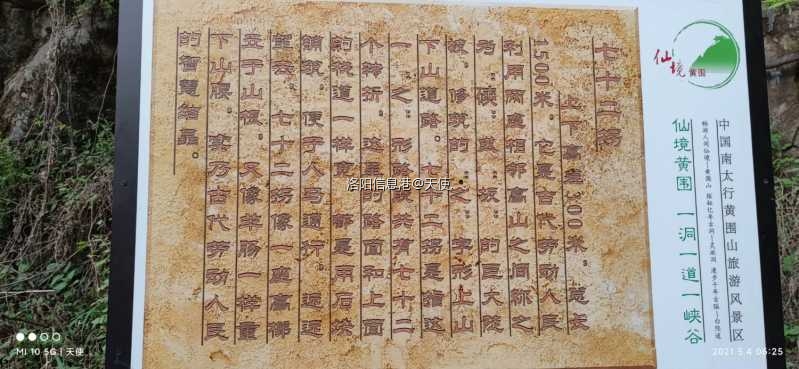 仙境
黄围
中国南太行黄围山旅游风景区
仙境黄围 一洞一道一峡谷
七十二拐
上下高差300米。总长
1500米。它是古代劳动人民
利用两处相邻高山之间称之
为“ 坂”的巨大陡
坡，修筑的“之”字形上山
下山道路。七十二拐是指这
一“之”形路段共有七十二
个转折。这里的路面和上面
的 道一样宽，都是用石块
铺筑，便于人马通行。远远
望去，七十二拐像一座高梯
立于山根，又像羊肠一样垂
下山腰。实乃古代劳动人民
的智慧结晶。
洛阳信息港@天使
MI 10 5G | 天使
2021.5.4 06:25